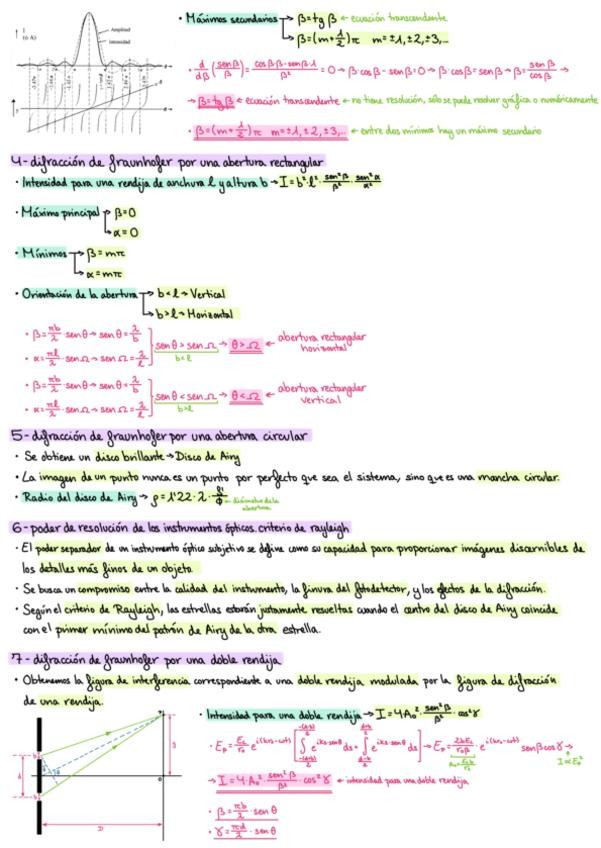 Amplitud
intensidad
· Máximos secundarios → β=tg β ← ecuación transcendente
→ β=(m+1/2)π m=±1,±2,±3,...
· d/dβ (sen β/β) = cosβ·β-senβ·1/β² = 0 → β·cosβ - senβ=0 → β·cosβ=senβ → β=senβ/cosβ →
→ β=tg β ← ecuación transcendente ← no tiene resolución, sólo se puede resolver gráfica o numéricamente
· β=(m+1/2)π m=±1,±2,±3,... ← entre dos mínimos hay un máximo secundario
4-difracción de fraunhofer por una abertura rectangular
· Intensidad para una rendija de anchura l y altura b → I=b²·l²·sen²β/β²·sen²α/α²
· Máximo principal → β=0
→ α=0
· Mínimos → β=mπ
→ α=mπ
· Orientación de la abertura → b<l → Vertical
→ b>l → Horizontal
· β=πb/λ·senθ → senθ=λ/b
· α=πl/λ·senΩ → senΩ=λ/l
senθ>senΩ → θ>Ω ← abertura rectangular horizontal
b<l
· β=πb/λ·senθ → senθ=λ/b
· α=πl/λ·senΩ → senΩ=λ/l
senθ<senΩ → θ<Ω ← abertura rectangular vertical
b>l
5-difracción de fraunhofer por una abertura circular
· Se obtiene un disco brillante → Disco de Airy
· La imagen de un punto nunca es un punto por perfecto que sea el sistema, sino que es una mancha circular.
· Radio del disco de Airy → ρ=1'22·λ· ← diámetro de la abertura
6-poder de resolución de los instrumentos ópticos. criterio de rayleigh
· El poder separador de un instrumento óptico subjetivo se define como su capacidad para proporcionar imágenes discernibles de
los detalles más finos de un objeto.
· Se busca un compromiso entre la calidad del instrumento, la finura del fotodetector, y los efectos de la difracción.
· Según el criterio de Rayleigh, las estrellas estarán justamente resueltas cuando el centro del disco de Airy coincide
con el primer mínimo del patrón de Airy de la otra estrella.
7-difracción de fraunhofer por una doble rendija
· Obtenemos la figura de interferencia correspondiente a una doble rendija modulada por la figura de difracción
de una rendija.
· Intensidad para una doble rendija → I=4A₀²·sen²β/β²·cos²γ
→ I=4·A₀²·sen²β/β²·cos²γ ← intensidad para una doble rendija
· β=πb/λ·senθ
· γ=πd/λ·senθ
D